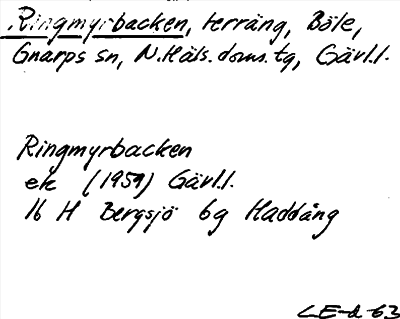 Ringmyrbacken, terräng, Böle,
Gnarps sn, N.Häls. doms. tg, Gävl.l.
Ringmyrbacken
ek (1959) Gävl.l.
16 H Bergsjö 6g Haddång